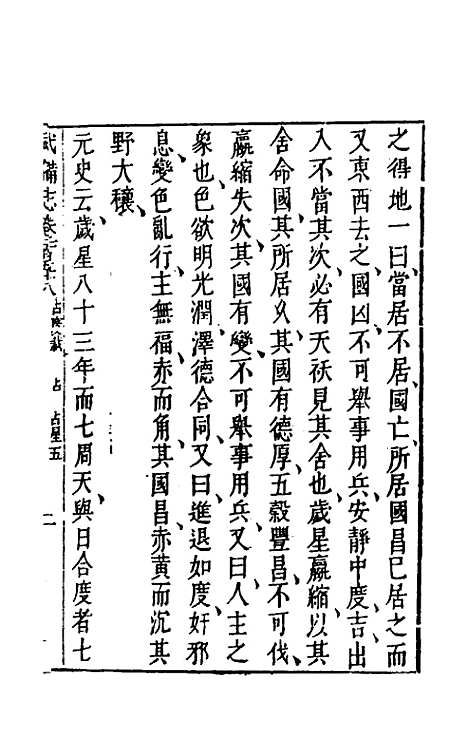 之得地一曰當居不居國亡所居國昌已居之而
又東西去之國凶不可舉事用兵安靜中度吉出
入不當其次必有天祅見其舍也歲星嬴縮以其
舍命國其所居久其國有德厚五穀豐昌不可伐
嬴縮失次其國有變不可舉事用兵又曰人主之
象也色欲明光潤澤德合同又曰進退如度奸邪
息變色亂行主無福赤而角其國昌赤黃而沉其
野大穰
元史云歲星八十三年而七周天與日合度者七
武備志卷一百四十八 占 占星五 二